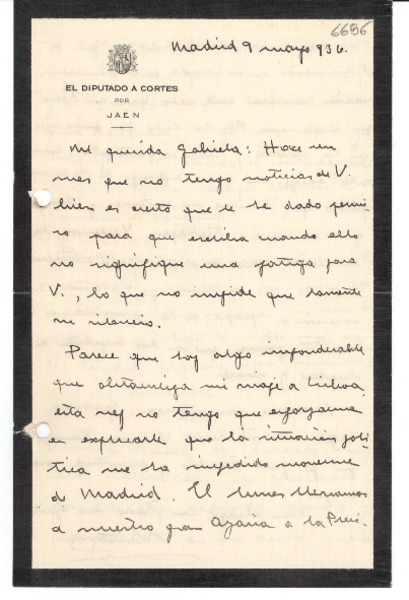 6656
Madrid 9 mayo 936.
EL DIPUTADO A CORTES
POR
JAÉN
Mi querida Gabriela: Hace un
mes que no tengo noticias de V.
bien es cierto que le he dado permi-
so para que escriba cuando ello
no signifique una fatiga para
V., lo que no impide que lamente
su silencio.
Parece que hay algo imponderable
que obstaculiza mi viaje a Lisboa,
esta vez no tengo que esforzarme
en explicarle que la situación polí-
tica me ha impedido moverme
de Madrid. El lunes llevamos
a nuestro gran Azaña a la Presi-